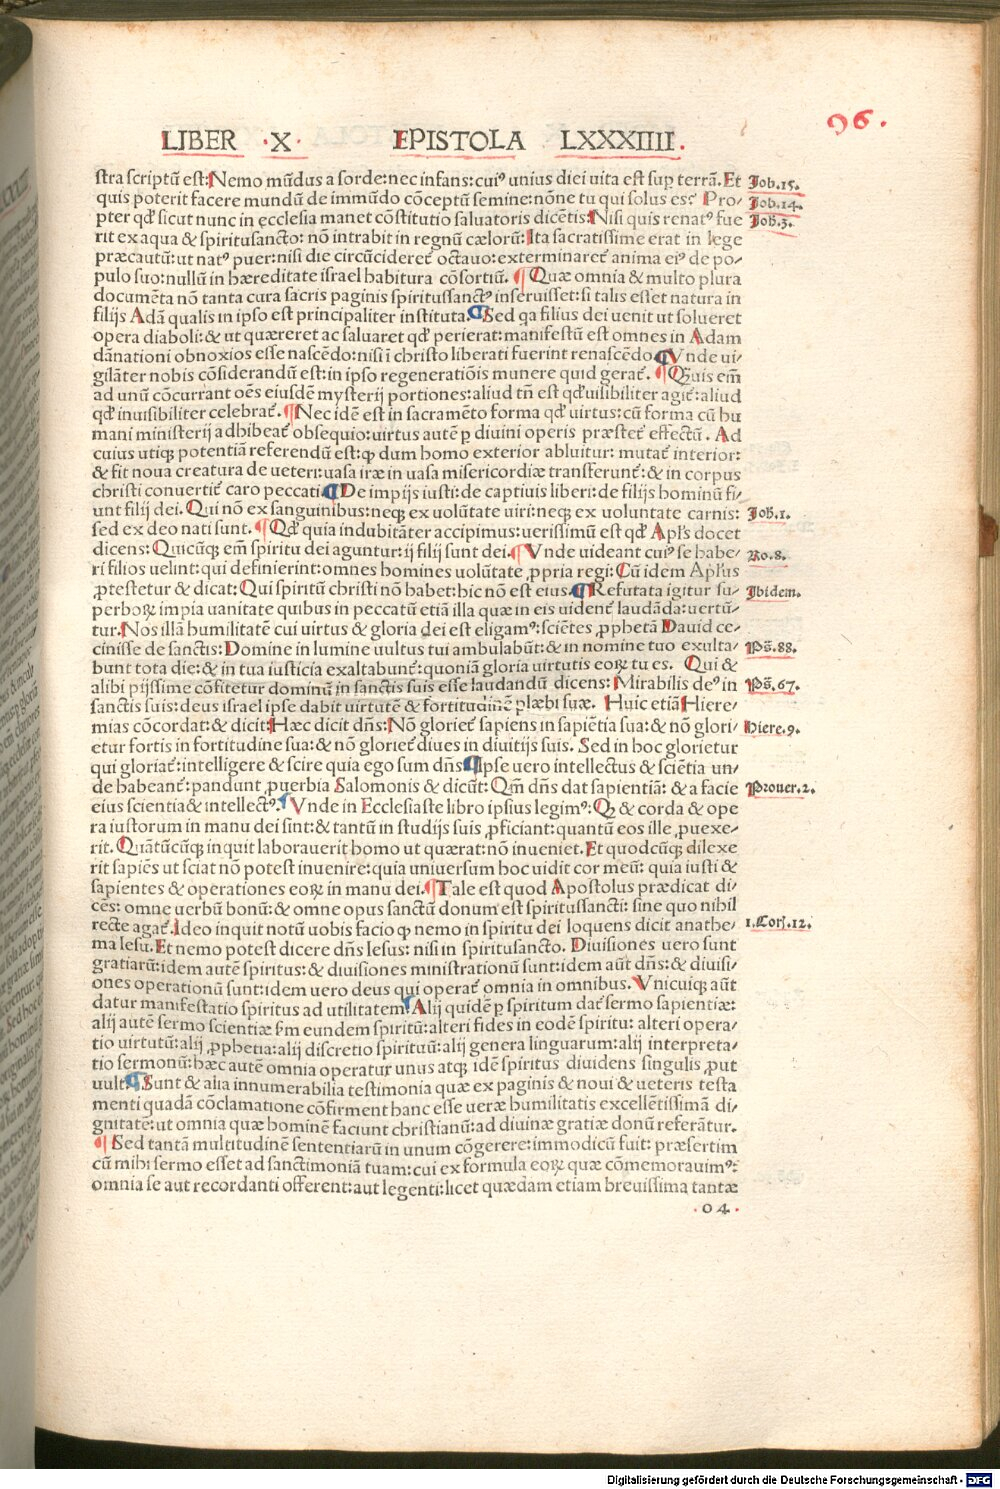 LIBER ·X· EPISTOLA LXXXIIII.
96.
stra scriptū est: Nemo mūdus a sorde: nec infans: cuiꝰ unius diei uita est sup terrā. Et
Job.15.
quis poterit facere mundū de immūdo cōceptū semine: nōne tu qui solus es? Pro-
Job.14.
pter qđ sicut nunc in ecclesia manet cōstitutio saluatoris dicētis: Nisi quis renatꝰ fue
Joh.3.
rit ex aqua & spiritusancto: nō intrabit in regnū cælorū: Ita sacratissime erat in lege
præcautū: ut natꝰ puer: nisi die circūcideret̄ octauo: exterminaret̄ anima eiꝰ de po-
pulo suo: nullū in hæreditate israel habitura cōsortiū. ¶ Quæ omnia & multo plura
documēta nō tanta cura sacris paginis spiritussanctꝰ inseruisset: si talis esset natura in
filijs Adā qualis in ipso est principaliter instituta. ¶ Sed qa filius dei uenit ut solueret
opera diaboli: & ut quæreret ac saluaret qđ perierat: manifestū est omnes in Adam
dānationi obnoxios esse nascēdo: nisi ī christo liberati fuerint renascēdo. ¶ Vnde ui-
gilāter nobis cōsiderandū est: in ipso regeneratiōis munere quid gerat̄. ¶ Q̄uis em̄
ad unū cōcurrant oēs eiusdē mysterij portiones: aliud tñ est qđ uisibiliter agit̄: aliud
qđ inuisibiliter celebrat̄. ¶ Nec idē est in sacramēto forma qđ virtus: cū forma cū hu
mani ministerij adhibeat̄ obsequio: uirtus autē ꝑ diuini operis præstet̄ effectū. Ad
cuius utiqꝫ potentiā referendū est: ꝙ dum homo exterior abluitur: mutat̄ interior:
& fit noua creatura de ueteri: uasa iræ in uasa misericordiæ transferunt̄: & in corpus
christi conuertit̄ caro peccati. ¶ De impijs iusti: de captiuis liberi: de filijs hominū fi-
unt filij dei. Qui nō ex sanguinibus: neqꝫ ex uolūtate uiri: neqꝫ ex uoluntate carnis:
Joh.1.
sed ex deo nati sunt. ¶ Qđ quia indubitāter accipimus: uerissimū est qđ Apl's docet
dicens: Quicūqꝫ em̄ spiritu dei aguntur: ij filij sunt dei. ¶ Vnde uideant cuiꝰ se habe-
Ro.8.
ri filios uelint: qui definierint: omnes homines uolūtate ꝓpria regi: Cū idem Apl'us
ꝓtestetur & dicat: Qui spiritū christi nō habet: hic nō est eius. ¶ Refutata igitur su-
Ibidem.
perboꝝ impia uanitate quibus in peccatū etiā illa quæ in eis uident̄ laudāda: uertū-
tur. Nos illā humilitatē cui uirtus & gloria dei est eligamꝰ: sciētes ꝓphetā Dauid ce-
cinisse de sanctis: Domine in lumine uultus tui ambulabūt: & in nomine tuo exulta-
Ps.88.
bunt tota die: & in tua iusticia exaltabunt̄: quoniā gloria uirtutis eoꝝ tu es. Qui &
alibi pijssime cōfitetur dominū in sanctis suis esse laudandū dicens: Mirabilis deꝰ in
Ps.67.
sanctis suis: deus israel ipse dabit uirtutē & fortitudinē plæbi suæ. Huic etiā Hiere-
mias cōcordat: & dicit: Hæc dicit dñs: Nō gloriet̄ sapiens in sapiētia sua: & nō glori-
Hiere.9.
etur fortis in fortitudine sua: & nō gloriet̄ diues in diuitijs suis. Sed in hoc glorietur
qui gloriat̄: intelligere & scire quia ego sum dñs. ¶ Ipse uero intellectus & sciētia un-
de habeant̄: pandunt ꝓuerbia Salomonis & dicūt: Qm̄ dñs dat sapientiā: & a facie
Prouer.2.
eius scientia & intellectꝰ. ¶ Vnde in Ecclesiaste libro ipsius legimꝰ: Qꝫ & corda & ope
ra iustorum in manu dei sint: & tantū in studijs suis ꝓficiant: quantū eos ille ꝓuexe-
rit. Quātūcūqꝫ inquit laborauerit homo ut quærat: nō inueniet. Et quodcūqꝫ dilexe
rit sapiēs ut sciat nō potest inuenire: quia uniuersum hoc uidit cor meū: quia iusti &
sapientes & operationes eoꝝ in manu dei. ¶ Tale est quod Apostolus prædicat di-
cēs: omne uerbū bonū: & omne opus sanctū donum est spiritussancti: sine quo nihil
recte agat̄. Ideo inquit notū uobis facio ꝙ nemo in spiritu dei loquens dicit anathe-
1.Cor.12.
ma Iesu. Et nemo potest dicere dñs Iesus: nisi in spiritusancto. Diuisiones uero sunt
gratiarū: idem autē spiritus: & diuisiones ministrationū sunt: idem aūt dñs: & diuisi-
ones operationū sunt: idem uero deus qui operat̄ omnia in omnibus. Vnicuiqꝫ aūt
datur manifestatio spiritus ad utilitatem. ¶ Alij quidē ꝑ spiritum dat̄ sermo sapientiæ:
alij autē sermo scientiæ s̄m eundem spiritū: alteri fides in eodē spiritu: alteri opera-
tio uirtutū: alij ꝓphetia: alij discretio spirituū: alij genera linguarum: alij interpreta-
tio sermonū: hæc autē omnia operatur unus atqꝫ idē spiritus diuidens singulis ꝓut
uult. ¶ Sunt & alia innumerabilia testimonia quæ ex paginis & noui & ueteris testa
menti quadā cōclamatione cōfirment hanc esse ueræ humilitatis excellētissimā di-
gnitatē: ut omnia quæ hominē faciunt christianū: ad diuinæ gratiæ donū referātur.
¶ Sed tantā multitudinē sententiarū in unum cōgerere: immodicū fuit: præsertim
cū mihi sermo esset ad sanctimoniā tuam: cui ex formula eoꝝ quæ cōmemorauimꝰ:
omnia se aut recordanti offerent: aut legenti: licet quædam etiam breuissima tantæ
·O4·
Digitalisierung gefördert durch die Deutsche Forschungsgemeinschaft - DFG